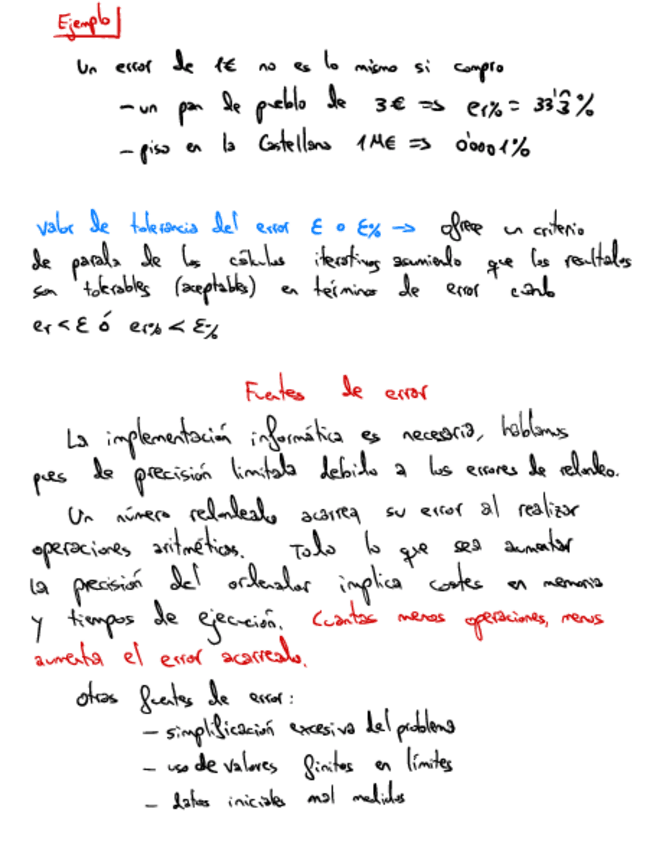 Ejemplo
Un error de 1€ no es lo mismo si compro
- un pan de pueblo de 3€ => er% = 33'3̂%
- piso en la Castellana 1M€ => 0'0001%
valor de tolerancia del error ε o ε% → ofrece un criterio
de parada de los cálculos iterativos asumiendo que los resultados
son tolerables (aceptables) en términos de error cuando
er < ε ó er% < ε%
Fuentes de error
La implementación informática es necesaria, hablamos
pues de precisión limitada debido a los errores de redondeo.
Un número redondeado acarrea su error al realizar
operaciones aritméticas. Todo lo que sea aumentar
la precisión del ordenador implica costes en memoria
y tiempos de ejecución. Cuantas menos operaciones, menos
aumenta el error acarreado.
otras fuentes de error:
- simplificación excesiva del problema
- uso de valores finitos en límites
- datos iniciales mal medidos